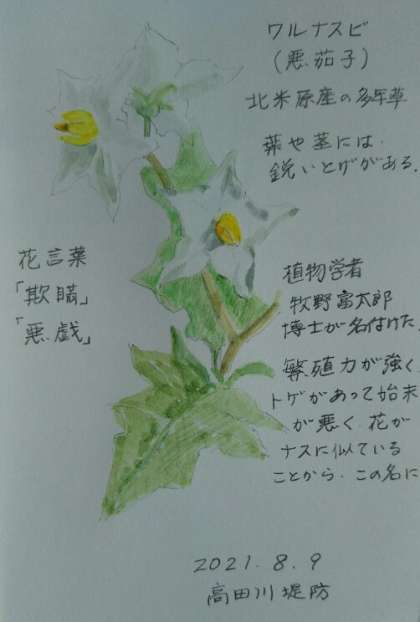 ワルナスビ
(悪茄子)
北米原産の多年草
葉や茎には
鋭いとげがある.
花言葉
「欺瞞」
「悪戯」
植物学者
牧野富太郎
博士が名付けた.
繁殖力が強く
トゲがあって始末
が悪く.花が
ナスに似ている
ことから.この名に
2021.8.9
高田川堤防